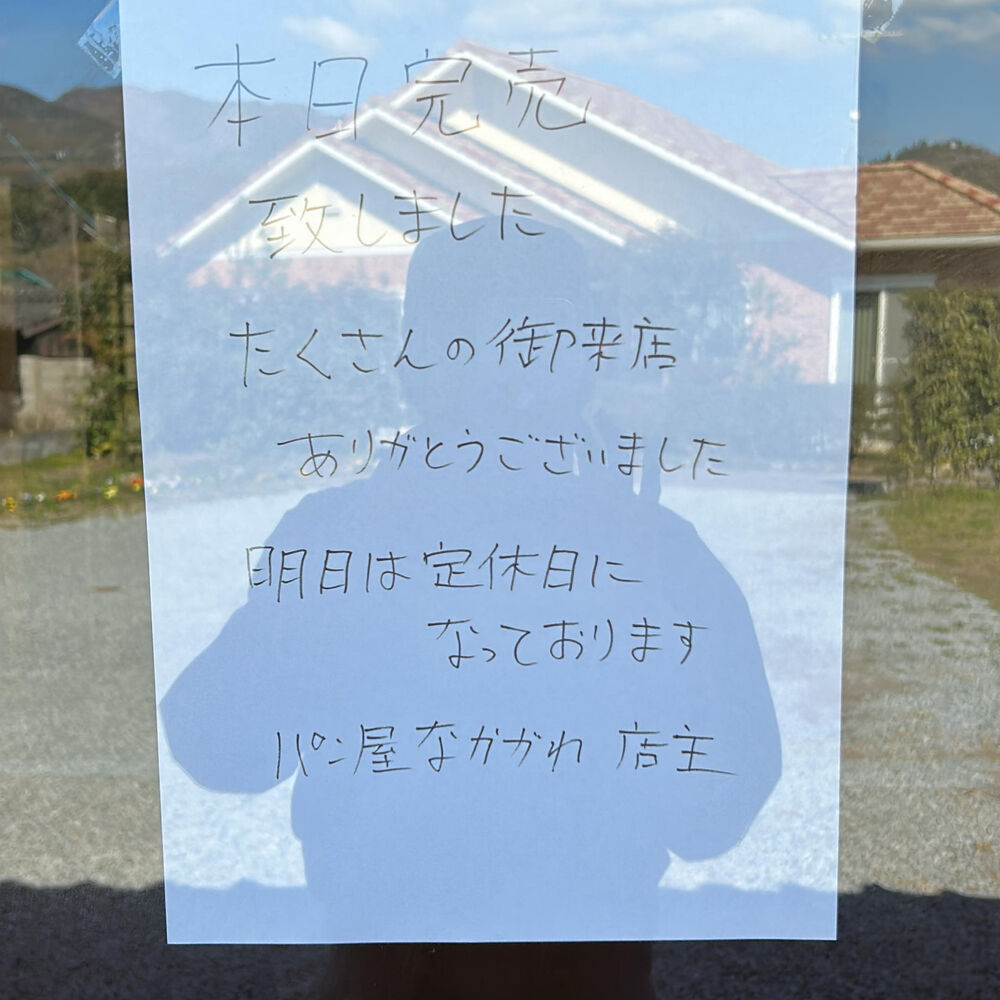 本日完売
致しました
たくさんの御来店
ありがとうございました
明日は定休日に
なっております
パン屋なかがわ 店主